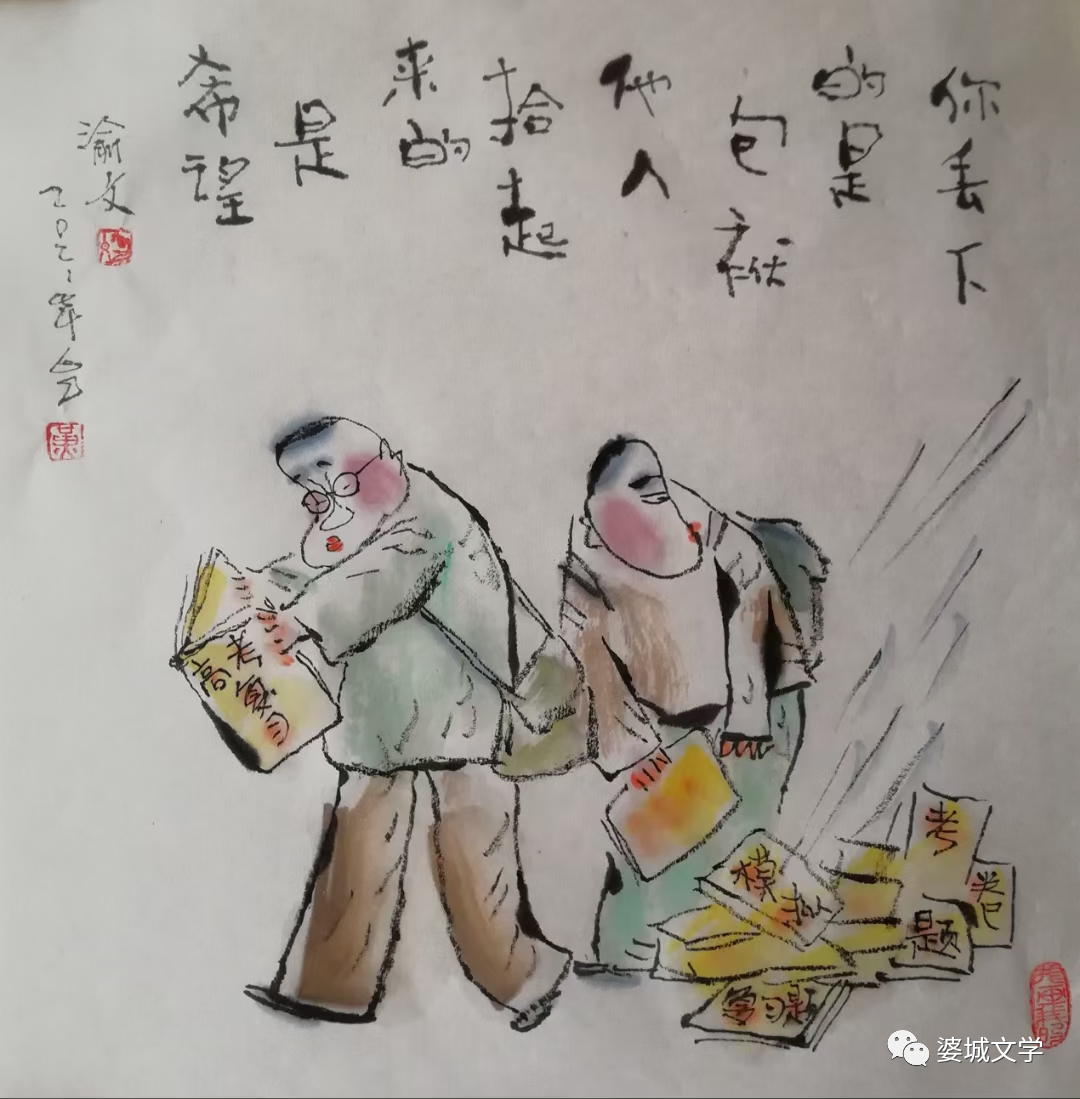 你丢下
的是
包袱
他人
拾起
来的
是
希望
渝文
二0二一年
高考复习
模拟
考
卷
题
学习题
婆城文学